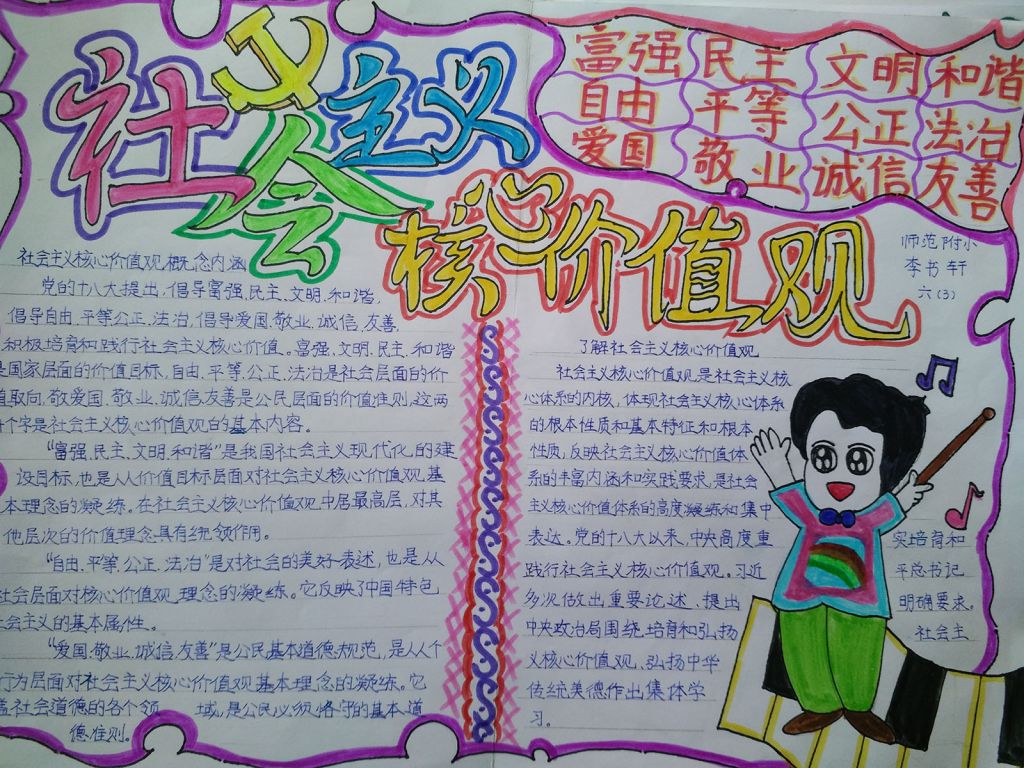 社会主义
核心价值观
富强 民主 文明 和谐
自由 平等 公正 法治
爱国 敬业 诚信 友善
师范附小
李书轩
六(3)
社会主义核心价值观概念内涵
党的十八大提出,倡导富强、民主、文明、和谐,
倡导自由、平等公正、法治,倡导爱国、敬业、诚信、友善,
积极培育和践行社会主义核心价值。富强、文明、民主、和谐
是国家层面的价值目标,自由、平等、公正、法治是社会层面的价
值取向,敬爱国、敬业、诚信、友善是公民层面的价值准则,这两
个字是社会主义核心价值观的基本内容。
“富强、民主、文明、和谐”是我国社会主义现代化的建
设目标,也是从从价值目标层面对社会主义核心价值观基
本理念的凝练。在社会主义核心价值观中居最高层,对其
他层次的价值理念具有统领作用。
“自由、平等、公正、法治”是对社会的美好表述,也是从
社会层面对核心价值观理念的凝练。它反映了中国特色
社会主义的基本属性。
“爱国、敬业、诚信、友善”是公民基本道德规范,是从个
行为层面对社会主义核心价值观基本理念的凝练。它
盖社会道德的各个领 域,是公民必须恪守的基本道
德准则。
了解社会主义核心价值观
社会主义核心价值观是社会主义核
心体系的内核,体现社会主义核心体系
的根本性质和基本特征和根本
性质,反映社会主义核心价值体
系的丰富内涵和实践要求,是社会
主义核心价值体系的高度凝练和集中
表达。党的十八大以来,中央高度重 实培育和
践行社会主义核心价值观。习近 平总书记
多次做出重要论述、提出 明确要求。
中央政治局围绕培育和弘扬 社会主
义核心价值观、弘扬中华
传统美德作出集体学
习。